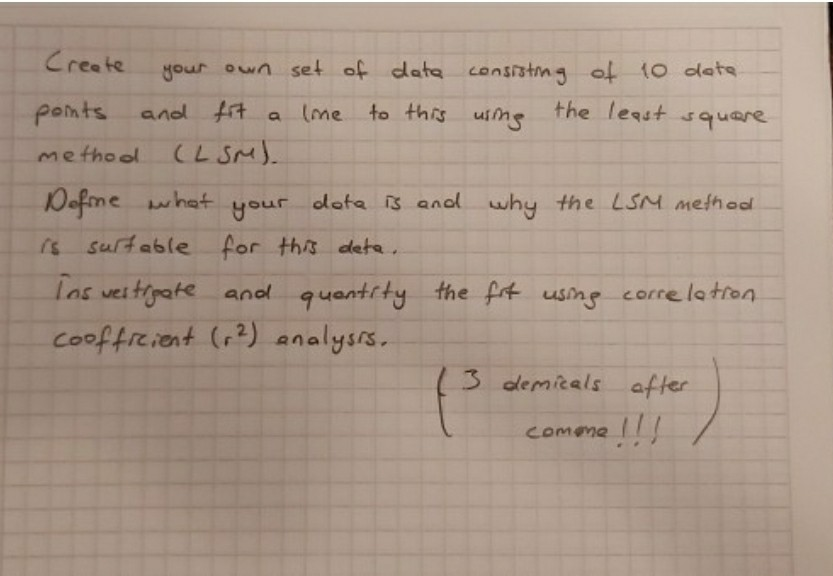 Create your own set of data consisting of 10 data
points and fit a line to this using the least square
method (LSM).
Define what your data is and why the LSM method
is suitable for this data.
Insvestigate and quantity the fit using correlation
coofficient (r²) analysis.
(3 demicals after
comma!!!)